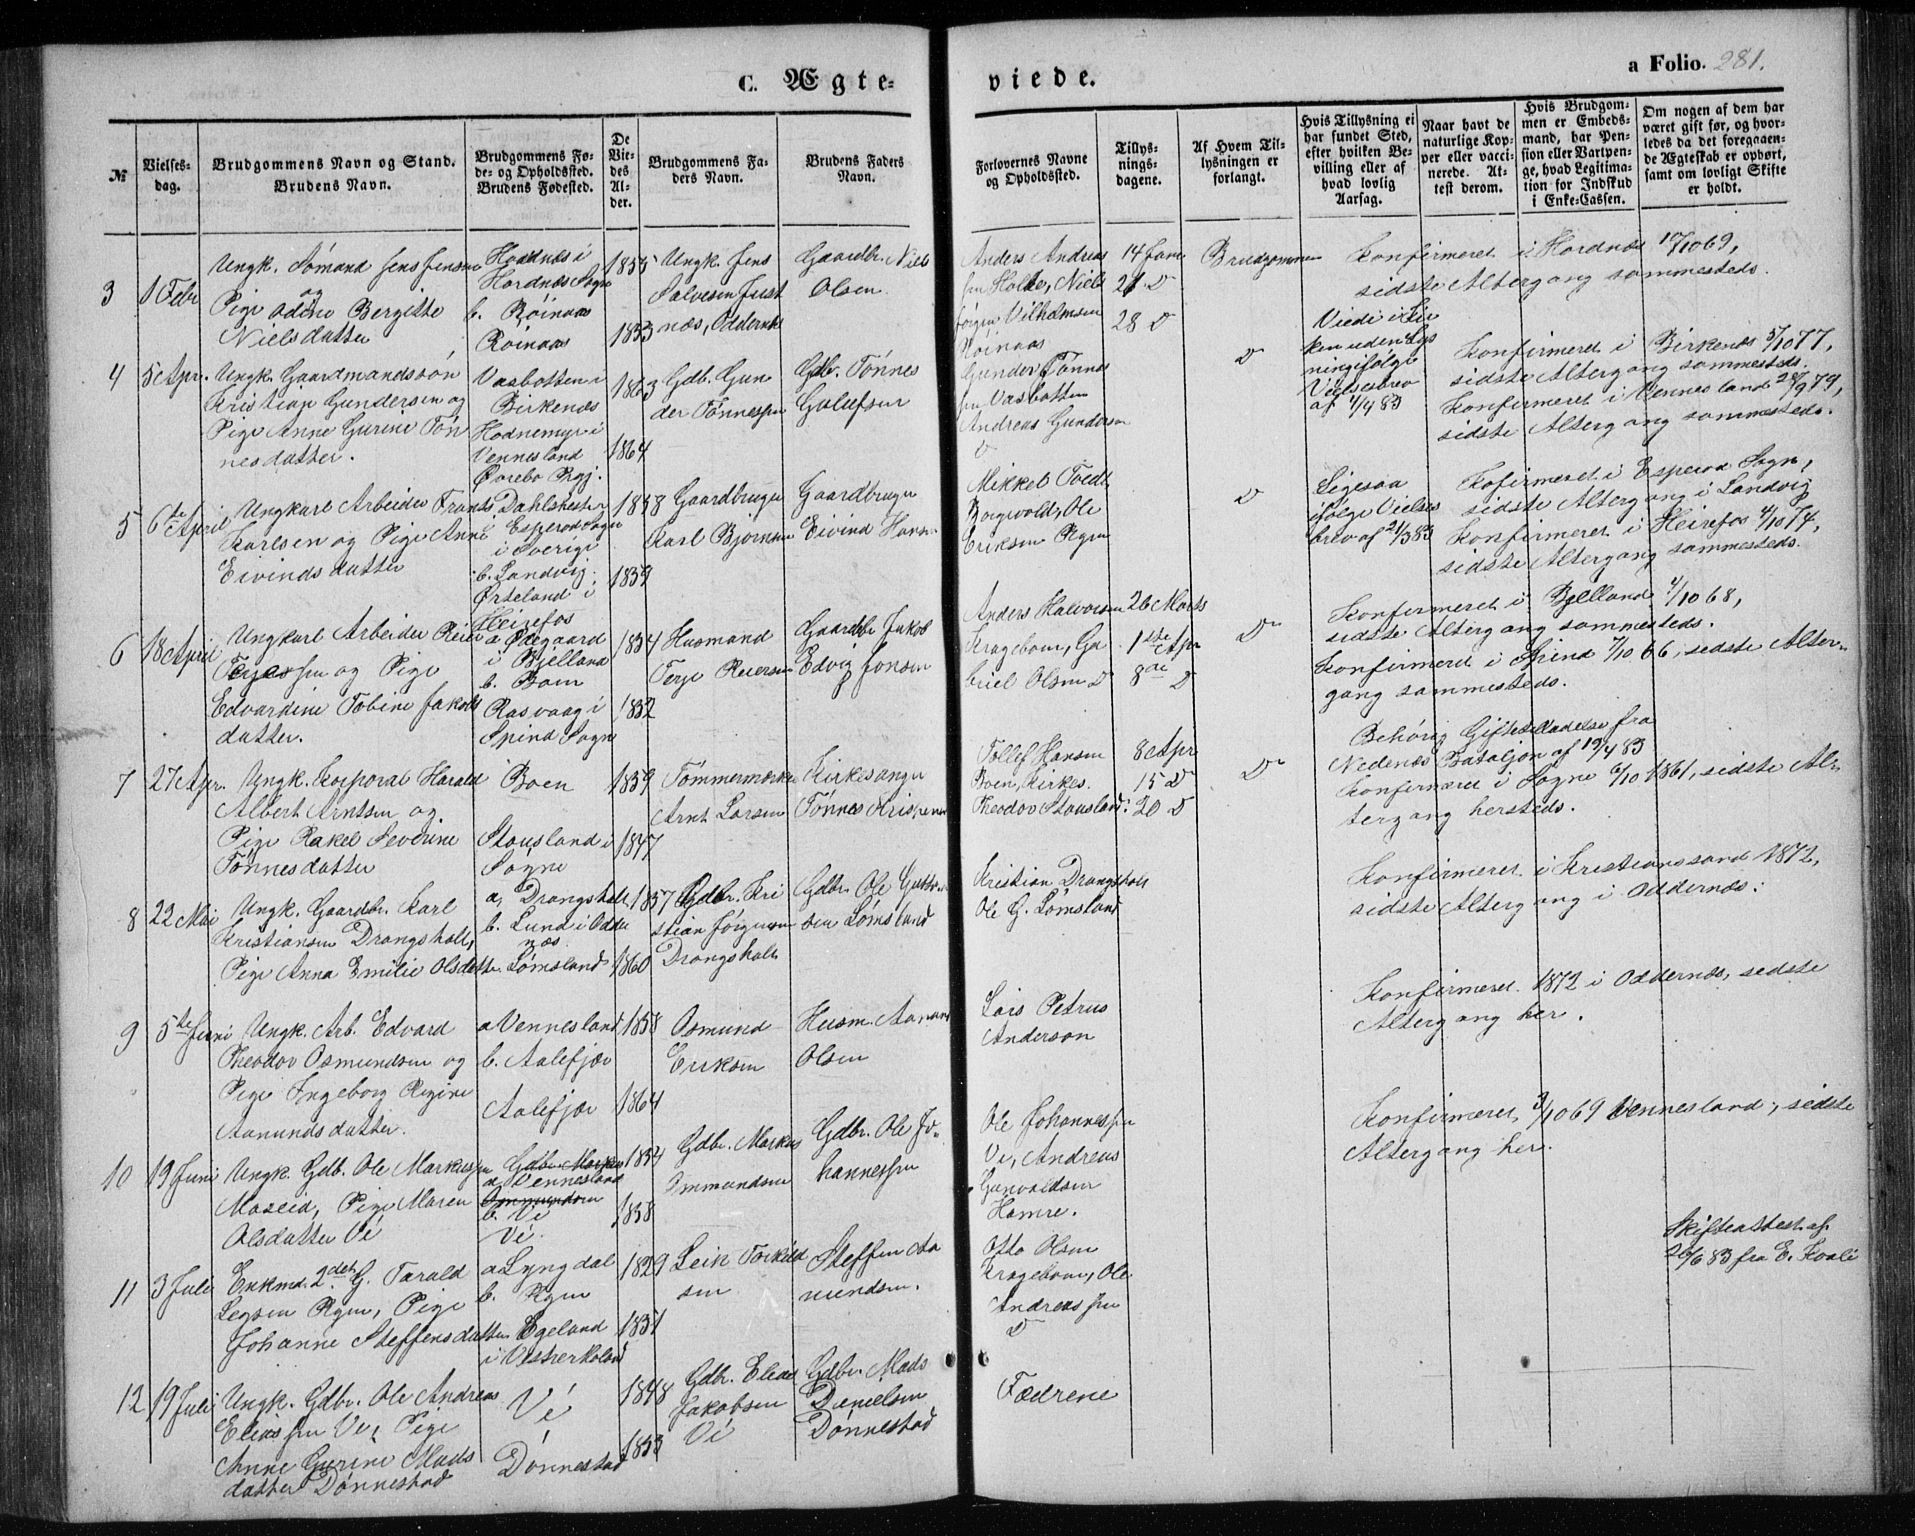 C. Ægte-
viede.
a Folio. 281.
№
Vielses-
dag.
Brudgommens Navn og Stand.
Brudens Navn.
Brudgommens Fø-
de- og Opholdssted.
Brudens Fødested.
De
Vie-
des
Al-
der.
Brudgommens Fa-
ders Navn.
Brudens Faders
Navn.
Forlovernes Navne
og Opholdssted.
Tillys-
nings-
dagene.
Af Hvem Til-
lysningen er
forlangt.
Hvis Tillysning ei
har fundet Sted,
efter hvilken Be-
villing eller af
hvad lovlig
Aarsag.
Naar havt de
naturlige Kop-
per eller vacci-
nerede. At-
test derom.
Hvis Brudgom-
men er Embeds-
mand, har Pen-
sion eller Vartpen-
ge, hvad Legitima-
tion for Indskud
i Enke-Cassen.
Om nogen af dem har
været gift før, og hvor-
ledes da det foregaaen-
de Ægteskab er ophørt,
samt om lovligt Skifte
er holdt.
3
1 Febr
Ungk. Sømand Jens Jensen
og
Pige Adine Bergitte
Nielsdatter
Hordnæs Sogn
b. Røinaas
Røinaas
1855
1853
Ungk. Jens
Salvesen Just
næs, Oddernæs
Gaardbr. Niels
Olsen
Anders Andreas
sen Holte, Niels
Jørgen Vilhelmsen
Røinaas
14 Jan
21 D
28 D
Brudgommen
Konfirmeret i Hordnæs 17/10 69,
sidste Altergang sammesteds.
4
5 Apr.
Ungk. Gaardmandssøn
Kristian Gundersen og
Pige Anne Gurine Tøn
nesdatter.
Vasbotten i
Birkenæs
Hodnemyr i
Vennesland
Øvrebø Prgj.
1863
1864
Gdb. Gun
der Tønnessen
Gdb. Tønnes
Gulufsen
Gunder Tønnes
sen Vasbotten
Andreas Gundersen
D
D
Viedi i Kir
ken uden Lys
ning ifølge
Vielsesbrev
af 1/4 83
Konfirmeret i Birkenæs 5/10 77,
sidste Altergang sammesteds.
Konfirmeret i Vennesland 28/9 79,
sidste Altergang sammesteds.
5
6te April
Ungkarl Arbeider Frants
Karlsen og Pige Anne
Eivindsdatter
i Esperød Sogn
i Sverige
b. Landvig
Ørteland i
Heirefos
1858
1859
Gaardbruger
Karl Bjørnsen
Gaardbruger
Eivind Hans
Mikkel Tvedt
Borgvold, Ole
Eriksen Ryen
D
Ligesaa
ifølge Vielses
brev af 21/3 83
Kofirmeret i Esperød Sogn,
sidste Altergang i Landvig
Konfirmeret i Heirefos 4/10 74,
sidste Altergang sammesteds.
6
18 April
Ungkarl Arbeider Reier
Terjessen og Pige
Edvardine Tobine Jakobs
datter.
a Ødegaard
i Bjelland
b. Boen
Rasvaag i
Spind Sogn
1854
1852
Husmand
Terje Reiersen
Gaardbr Jakob
Edvig Jonsen
Anders Halvorsen
Kragebom, Ga
briel Olsen D
26 Marts
1ste Apr
8de D
D
Konfirmeret i Bjelland 4/10 68,
sidste Altergang sammesteds.
Konfirmeret i Spind 7/10 66, sidste Alter-
gang sammesteds.
7
27 Apr.
Ungk. Korporal Harald
Albert Arntsen og
Pige Rakel Severine
Tønnesdatter
Boen
Stousland i
Søgne
1839
1847
Tømmermærker
Arnt Larsen
Kirkesanger
Tønnes Kristiansen
Tollef Hansen
Boen, Kirkes.
Theodor Stousland
8 Apr
15 D
20 D
D
Behørig Giftetilladelse fra
Nedenæs Bataljon af 19/4 83
Konfirmeret i Søgne 6/10 1861, sidste Al-
tergang hersteds.
8
22 Mai
Ungk. Gaardbr. Karl
Kristiansen Drangsholt,
Pige Anna Emilie Olsdatter
a, Drangsholt
b. Lund i Odder
næs.
Lømsland
1857
1860
Gdbr. Kri
stian Jørgensen
Drangsholt
Gdbr. Ole Guttorm
sen Lømsland
Kristian Drangsholt
Ole G. Lømsland
Konfirmeret i Kristianssand 1872,
sidste Altergang i Oddernæs.
9
5te Juni
Ungk. Arb. Edvard
Theodor Osmundsen og
Pige Ingeborg Regine
Aanundsdatter.
a Vennesland
b. Aalefjær
Aalefjær
1858
1864
Osmund
Eriksen
Husm. Aanund
Olsen
Lars Petrus
Anderson
Konfirmeret 1872 i Oddernæs, sidste
Altergang her.
10
19 Juni
Ungk. Gdb. Ole Markussen
Moseid, Pige Maren
Olsdatter Vé
Gdbr. Markus
a Vennesland
Ommundsen
b. Vé
Vé.
1854
1858
Gdbr. Markus
Ommundsen
Gdbr. Ole Jo-
hannessen
Ole Johannessen
Ve, Andreas
Gunvaldsen
Hamre.
Konfirmeret 3/10 69 Vennesland, sidste
Altergang her.
11
3 Juli
Enkmd. 2det G. Tarald
Legsen Ryen, Pige
Johanne Steffensdatter
a Lyngdal
b. Ryen
Egeland
i Vesterholand
1829
1851
Leik Torkild
sen
Steffen Aa
nundsen.
Otto Olsen
Kragebom, Ole
Andreassen
D
Skifteattest af
26/6 83 fra E. Kvale
12
19 Juli
Ungk. Gdbr. Ole Andreas
Eliassen Ve, Pige
Anne Gurine Mads
datter Dønnestad
Vé
Dønnestad
1848
1853
Gdbr. Elias
Jakobsen
Vé
Gdbr. Mads
Danielsen
Dønnestad
Fædrene